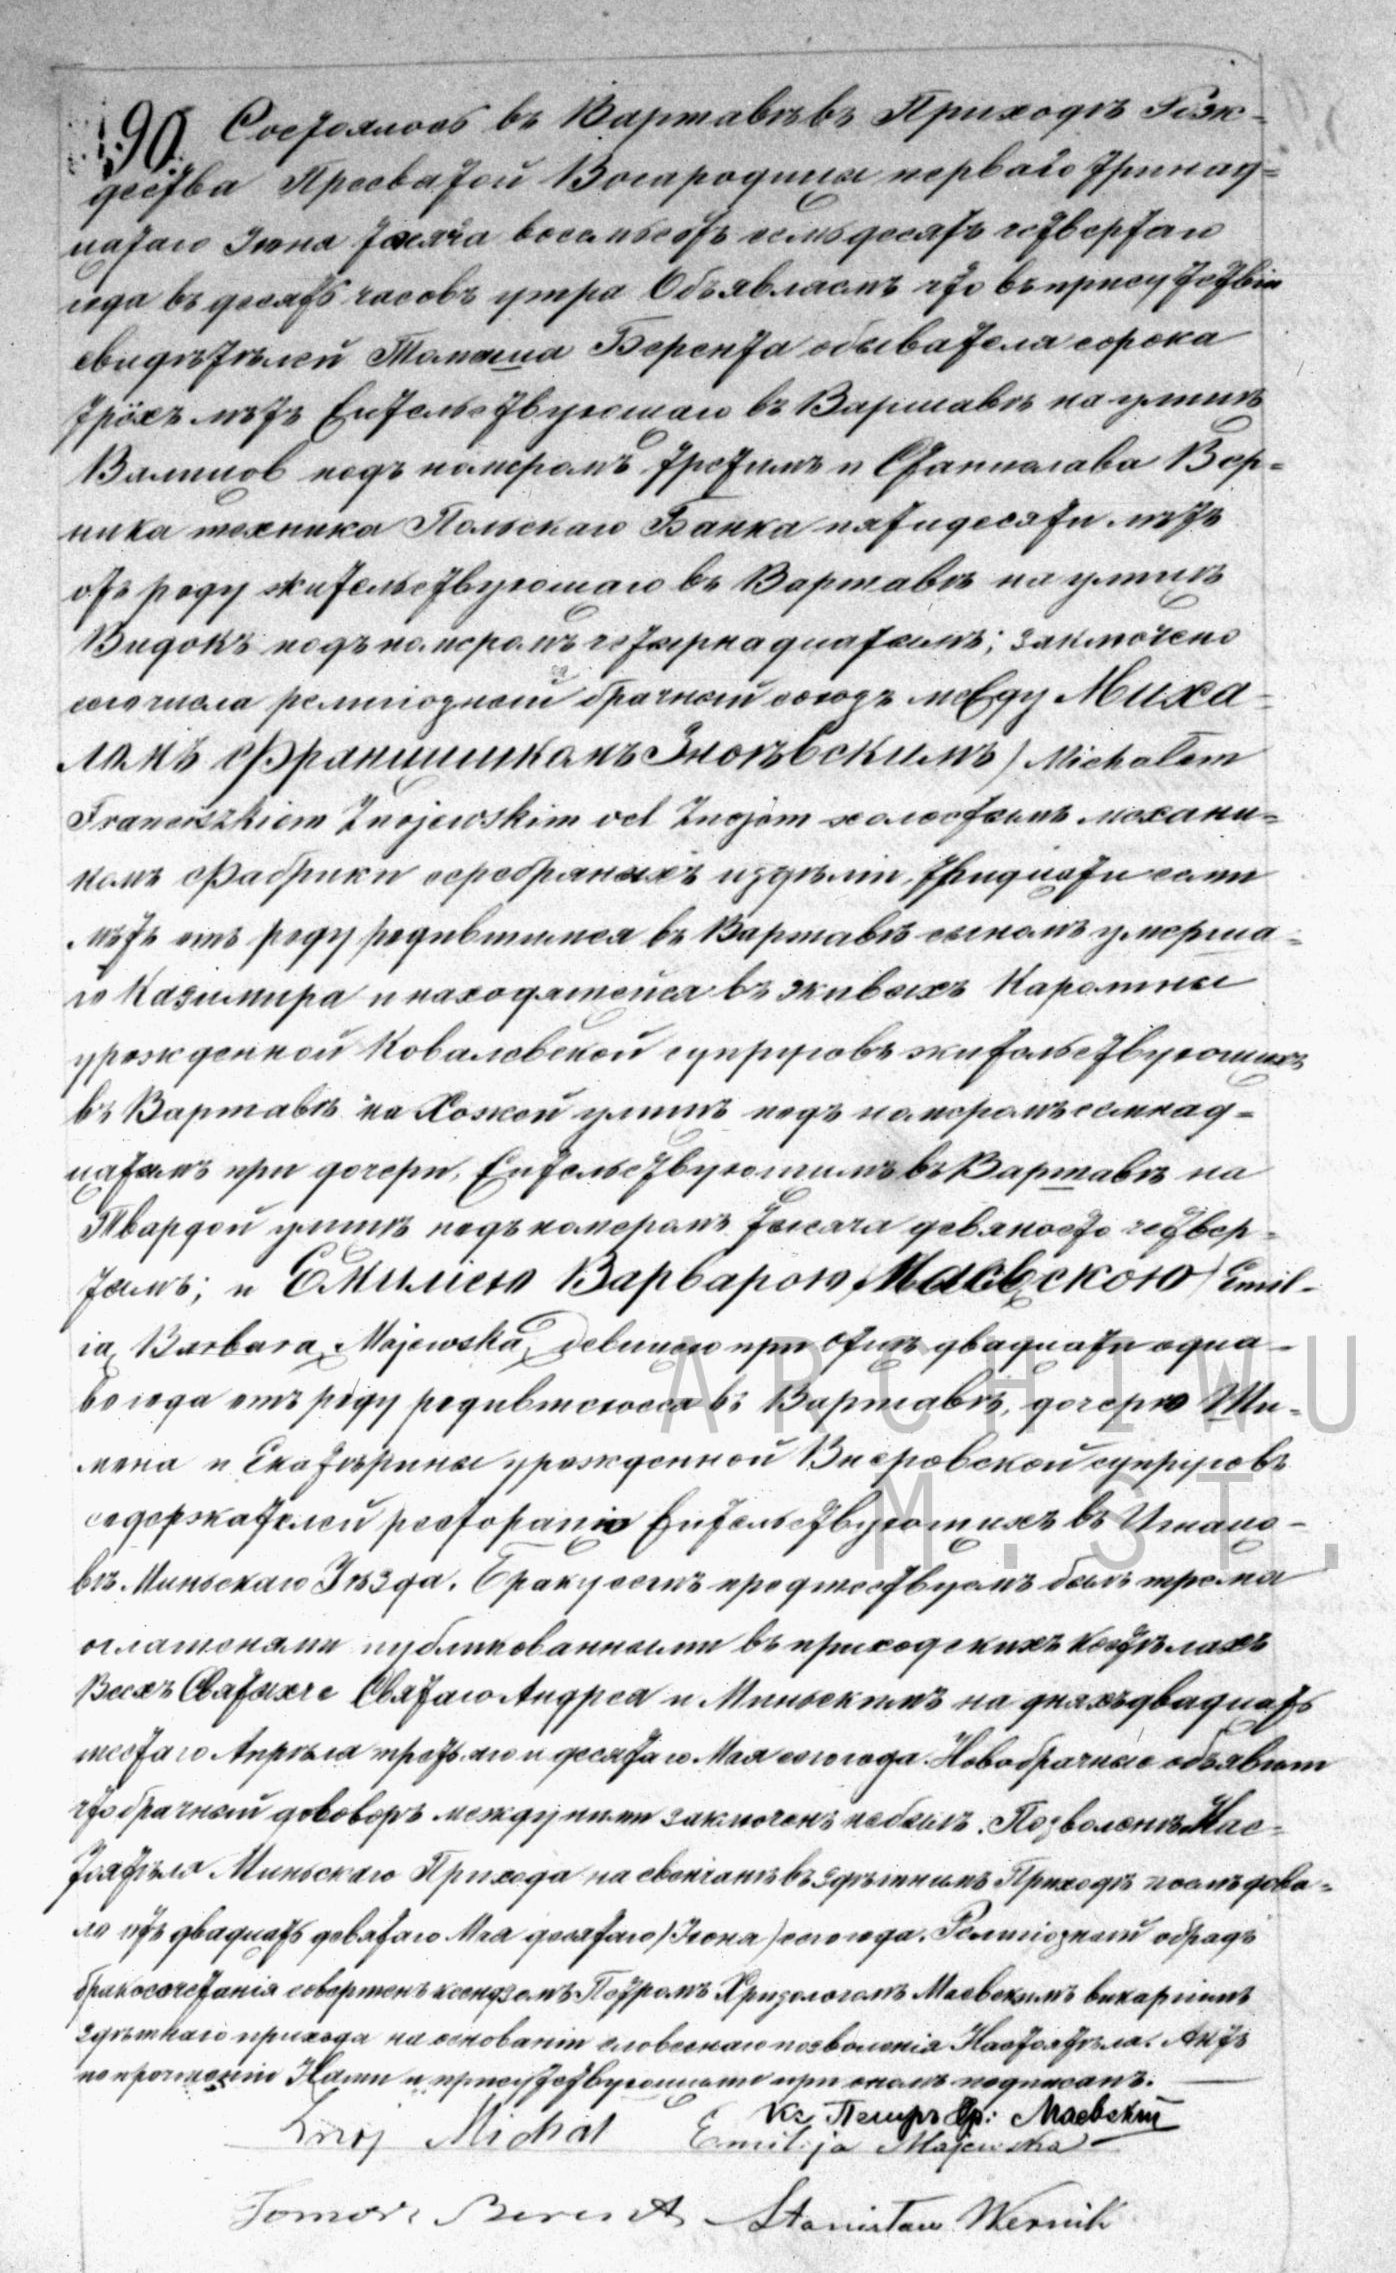 90 Состоялось въ Варшавѣ въ Приходѣ Рож-
дества Пресвятой Богородицы перваго тринад-
цатаго Іюня тысяча восемьсотъ семьдесятъ четвертаго
года въ десять часовъ утра Объявляемъ что въ присутствіи
свидѣтѣлей Томаша Берента обывателя сорока
трёхъ лѣтъ Жительствующаго въ Варшавѣ на улицѣ
Валицов подъ номеромъ третимъ и Станислава Вер-
ника техника Польскаго Банка пятидесяти лѣтъ
отъ роду жительствующаго въ Варшавѣ на улицѣ
Видокъ подъ номеромъ четырнадцатымъ; заключено
сего числа религіозный брачный союзъ между Миха-
ломъ Францишкомъ Зноевскимъ) Michałem
Franciszkiem Znojewskim vel Znojem холостымъ механи-
комъ Фабрики серебряныхъ издѣлій, тридцати семи
лѣтъ отъ роду родившимся въ Варшавѣ сыномъ умерша-
го Казимира и находящейся въ живыхъ Каролины
урожденной Ковалевской супруговъ жительствующихъ
въ Варшавѣ на Хожой улицѣ подъ номеромъ семнад-
цатымъ при дочери, Жительствующимъ въ Варшавѣ на
Твардой улицѣ подъ номеромъ тысяча девяносто четвер-
тымъ; и Емиліею Варварою Маевскою) Emil-
ia Barbara Majewska девицею при Отцѣ двадцати одна-
го года отъ роду родившеюся въ Варшавѣ, дочерю Ши-
мона и Екатерины урожденной супруговъ
содержателей ресторація Жительствующихъ въ
вѣ Миньскаго Уѣзда. Браку сему предшествуемъ было трема
оглашеніями публикованными въ приходскихъ костѣлахъ
Всехъ Святыхъ Святаго Андрея и Миньскимъ на дняхъ двадцать
шестаго Апрѣля третьяго и десятаго Мая сего года. Новобрачные объявили
что брачный договоръ между ними заключенъ небылъ. Позволенѣ Нас-
тоятѣля Миньскаго Прихода на свенчанѣ въ здѣшнимъ Приходѣ послѣдова-
ло отъ двадцать девятаго Мая десятаго) Іюня) сего года. Религіозный обрядъ
бракосочетанія совершенъ ксендзомъ Петромъ Хризологомъ Маевскимъ викаріимъ
здѣшнаго прихода на основаніи словеснаго позволенія Настоятѣля. Актъ
по прочтеніи Нами и присутствующими при ономъ подписанъ.
Кс Петръ Хр: Маевский
Znoj Michał Emilija Majewska
Tomasz Berent Stanisław Wernik
ARCHIWU
M.ST.